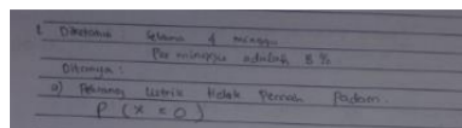 1. Diketahui selama 4 minggu
Per minggu adalah 8 %
Ditanya :
a) Peluang listrik tidak pernah padam.
P (x = 0)